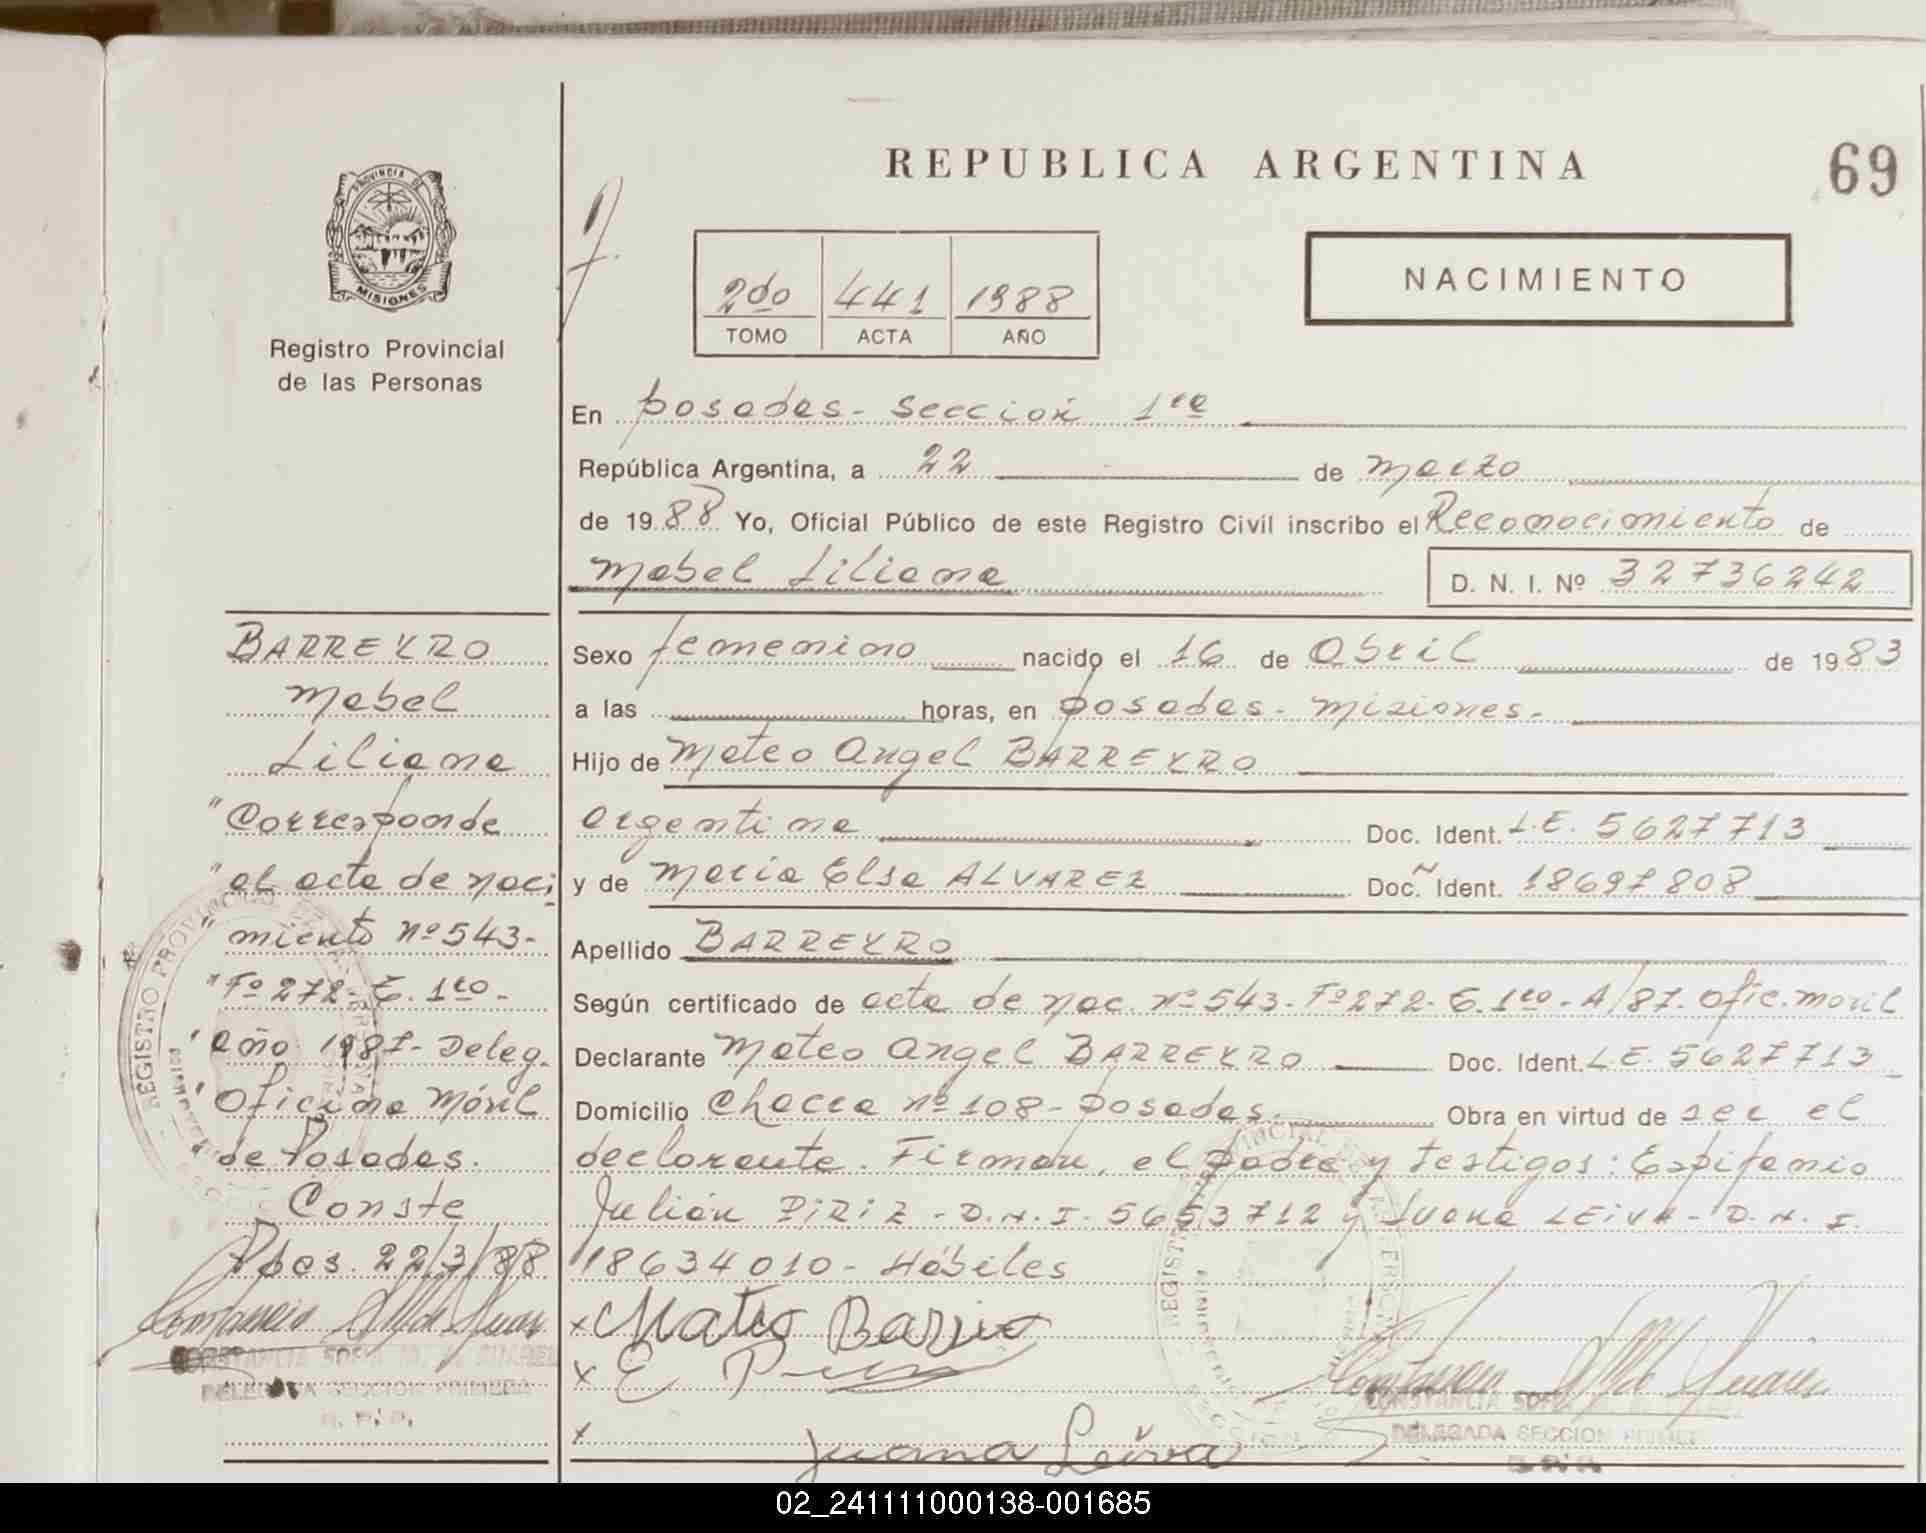 REPUBLICA ARGENTINA
69
PROVINCIA DE
MISIONES
Registro Provincial
de las Personas
2do 441 1988
TOMO ACTA AÑO
NACIMIENTO
En Posadas - Sección 1ra
República Argentina, a 22 de Marzo
de 1988 Yo, Oficial Público de este Registro Civil inscribo el Reconocimiento de
Mabel Liliana D. N. I. Nº 32736242
Sexo femenino nacido el 16 de Abril de 1983
a las horas, en Posadas - Misiones -
Hijo de Mateo Angel BARREYRO
argentina Doc. Ident. L.E. 5627713
y de María Elsa ALVAREZ Doc. Ident. 18697808
Apellido BARREYRO
Según certificado de acta de nac. nº 543 - Fº 272 - T. 1ro - A/87. Ofic. movil
Declarante Mateo Angel BARREYRO Doc. Ident. L.E. 5627713
Domicilio Chacra nº 108 - Posadas. Obra en virtud de ser el
declarante. Firman, el padre y testigos: Espifanio
Julián PIRIZ - D.N.I. 5653712 y Juana LEIVA - D.N.I.
18634010 - Hábiles
x Mateo Barjro
x E P
x Juana Leiva
BARREYRO
Mabel
Liliana
"Corresponde
"al acta de naci
"miento nº 543 -
"Fº 272 - T. 1ro -
"año 1987 - Deleg.
"Oficina Móvil
"de Posadas.
Conste
Pdas. 22/3/88
CONSTANCIA SOFIA M. DE SUAREZ
DELEGADA SECCION PRIMERA
R. P. P.
CONSTANCIA SOFIA M. DE
DELEGADA SECCION PRIMERA
02_241111000138-001685